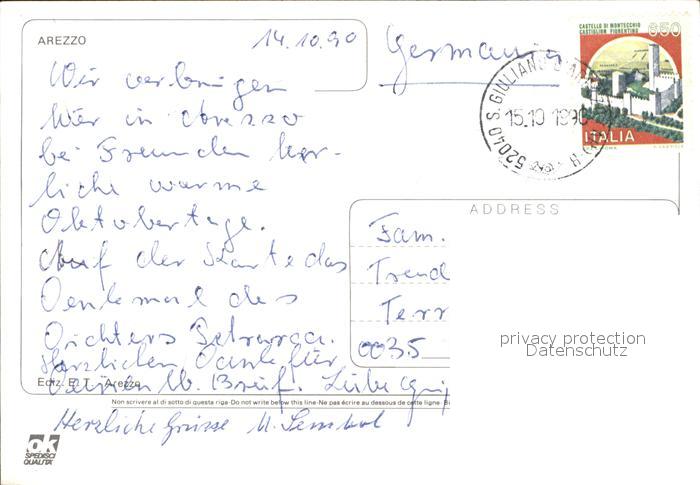 AREZZO
14.10.90
Germania
CASTELLO DI MONTECCHIO
CASTIGLION FIORENTINO
650
ITALIA
52040 S. GIULIANO
15.10 1990
Wir verbringen
hier in Arezzo
bei Freunden herr-
liche warme
Oktobertage.
Auf der Karte das
Denkmal des
Dichters Petrarca.
Herzlichen Dank für
lb. Brief. Liebe
Herzliche Grüsse M.
ADDRESS
Fam.
Trend
Terr
0035
privacy protection
Datenschutz
Ediz. E. T. - Arezzo
Non scrivere al di sotto di questa riga-Do not write below this line-Ne pas écrire au dessous de cette ligne-
ok
SPEDISCI
QUALITA'